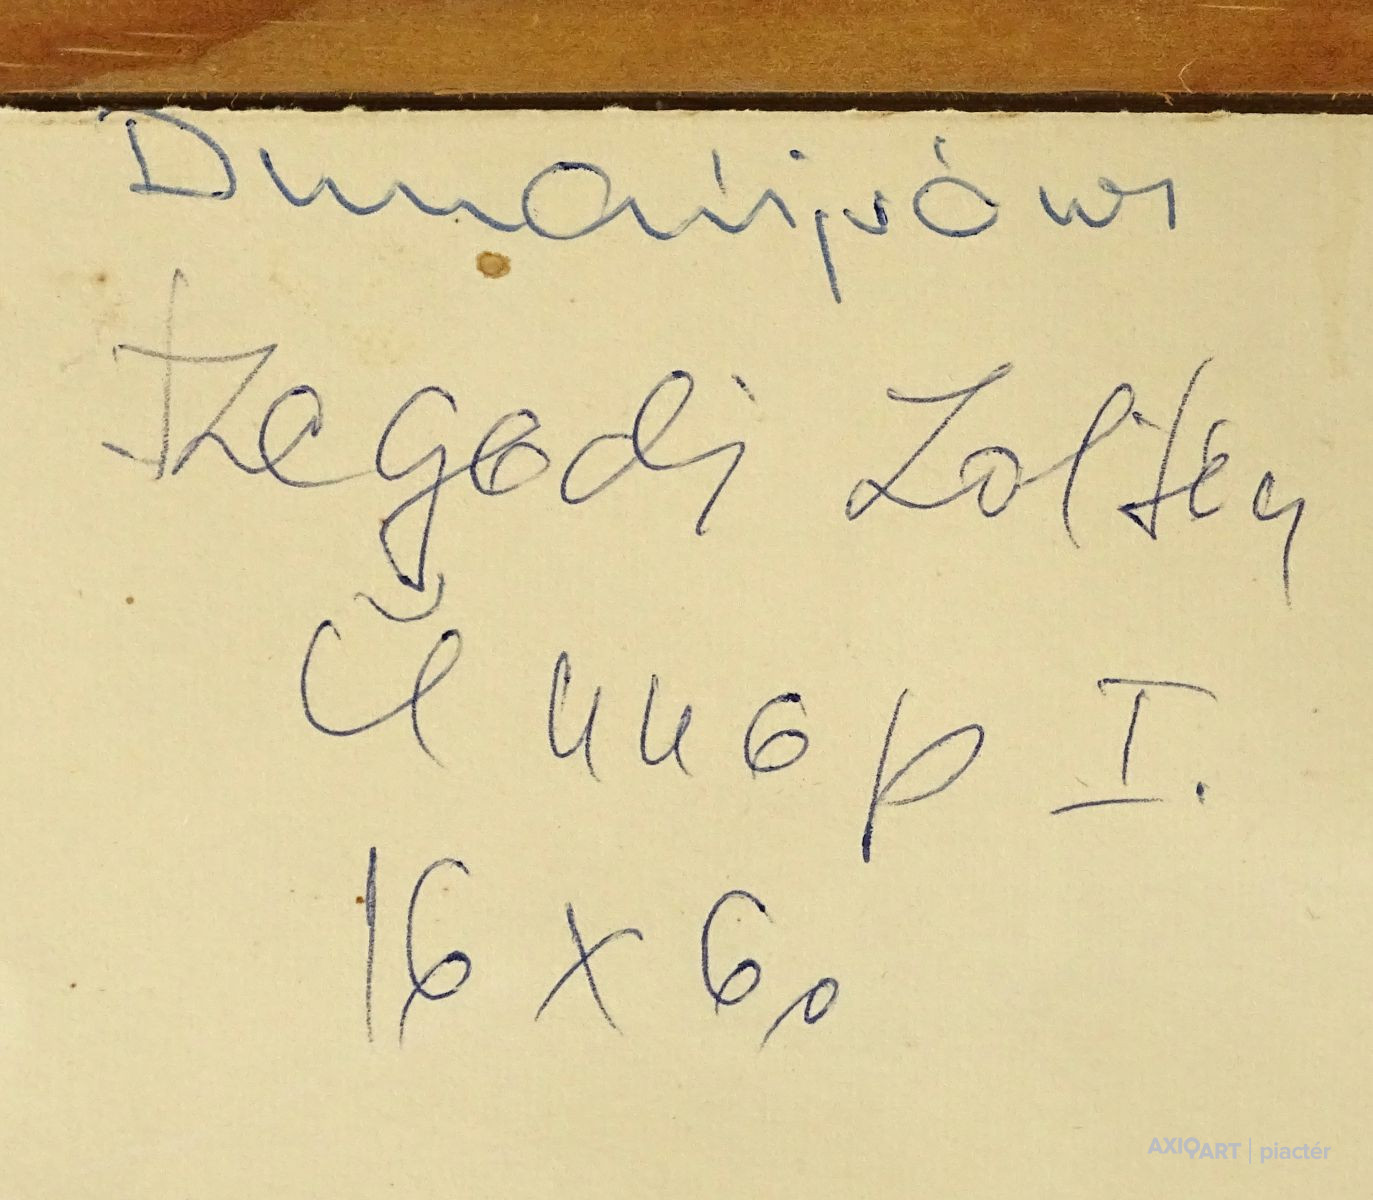 Dunaújváros
Szegedi Zoltán
Ünnep I.
16 x 60
AXIOART | piactér